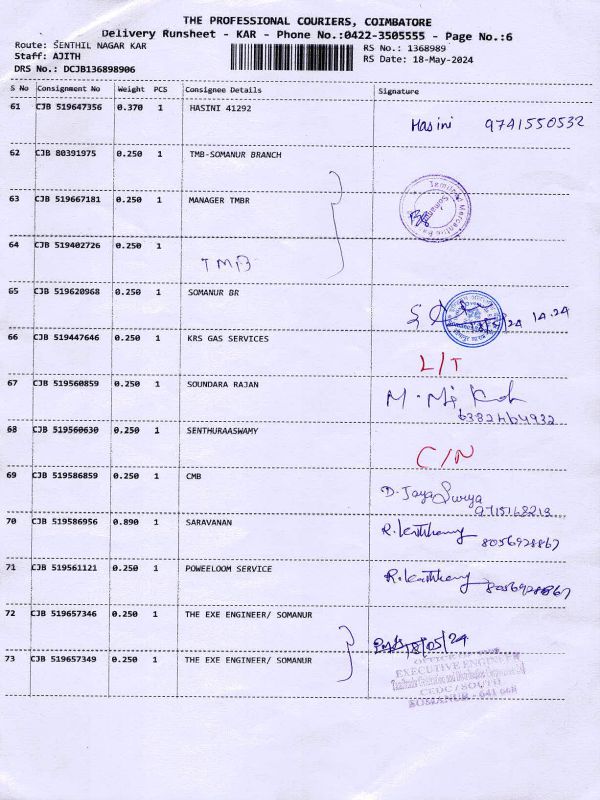 THE PROFESSIONAL COURIERS, COIMBATORE
Delivery Runsheet - KAR - Phone No.:0422-3505555 - Page No.:6
Route: SENTHIL NAGAR KAR RS No.: 1368989
Staff: AJITH RS Date: 18-May-2024
DRS No.: DCJB136898906
S No Consignment No Weight PCS Consignee Details Signature
61 CJB 519647356 0.370 1 HASINI 41292
Hasini 9741550532
62 CJB 80391975 0.250 1 TMB-SOMANUR BRANCH
63 CJB 519667181 0.250 1 MANAGER TMBR
64 CJB 519402726 0.250 1
TMB
65 CJB 519620968 0.250 1 SOMANUR BR
14.24
66 CJB 519447646 0.250 1 KRS GAS SERVICES
L/T
67 CJB 519560859 0.250 1 SOUNDARA RAJAN
68 CJB 519560630 0.250 1 SENTHURAASWAMY
C/N
69 CJB 519586859 0.250 1 CMB
D. Jaya Surya
70 CJB 519586956 0.890 1 SARAVANAN
8056928867
71 CJB 519561121 0.250 1 POWEELOOM SERVICE
8056928867
72 CJB 519657346 0.250 1 THE EXE ENGINEER/ SOMANUR
18/05/24
73 CJB 519657349 0.250 1 THE EXE ENGINEER/ SOMANUR
EXECUTIVE ENGINEER
CEDC/SOUTH
SOMANUR - 641 668